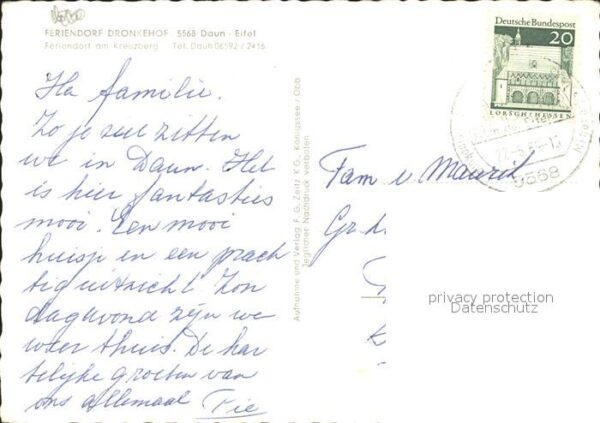 FERIENDORF DRONKEHOF 5568 Daun - Eifel
Feriendorf am Kreuzberg Tel. Daun 06592 / 2416
Ha familie.
Zo je ziet zitten
we in Daun. Het
is hier fantasties
mooi. Een mooi
huisje en een prach
tig uitzicht. Zon
dagavond zijn we
weer thuis. De har
telijke groeten van
ons allemaal Tie
Aufnahme und Verlag F. G. Zeitz K G., Königssee / Obb
Jeglicher Nachdruck verboten
Deutsche Bundespost
20
LORSCH/HESSEN
5568
Fam v. Maurik
privacy protection
Datenschutz